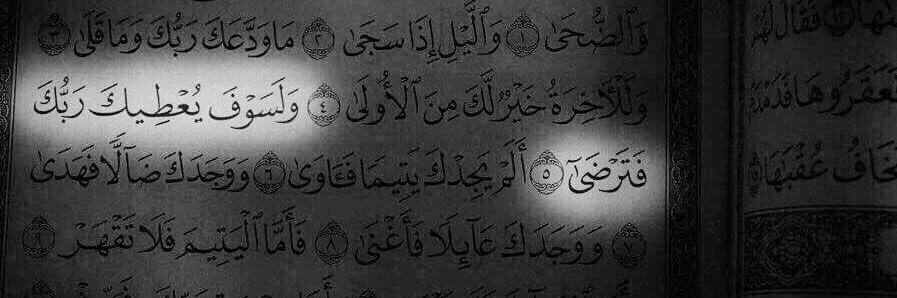 وَٱلضُّحَىٰ ١ وَٱلَّيۡلِ إِذَا سَجَىٰ ٢ مَا وَدَّعَكَ رَبُّكَ وَمَا قَلَىٰ ٣
وَلَلۡأٓخِرَةُ خَيۡرٞ لَّكَ مِنَ ٱلۡأُولَىٰ ٤ وَلَسَوۡفَ يُعۡطِيكَ رَبُّكَ
فَتَرۡضَىٰٓ ٥ أَلَمۡ يَجِدۡكَ يَتِيمٗا فَـَٔاوَىٰ ٦ وَوَجَدَكَ ضَآلّٗا فَهَدَىٰ
٧ وَوَجَدَكَ عَآئِلٗا فَأَغۡنَىٰ ٨ فَأَمَّا ٱلۡيَتِيمَ فَلَا تَقۡهَرۡ ٩
فَقَالَ لَهُمۡ
فَعَقَرُوهَا فَدَمۡدَمَ
يَخَافُ عُقۡبَٰهَا ١٥